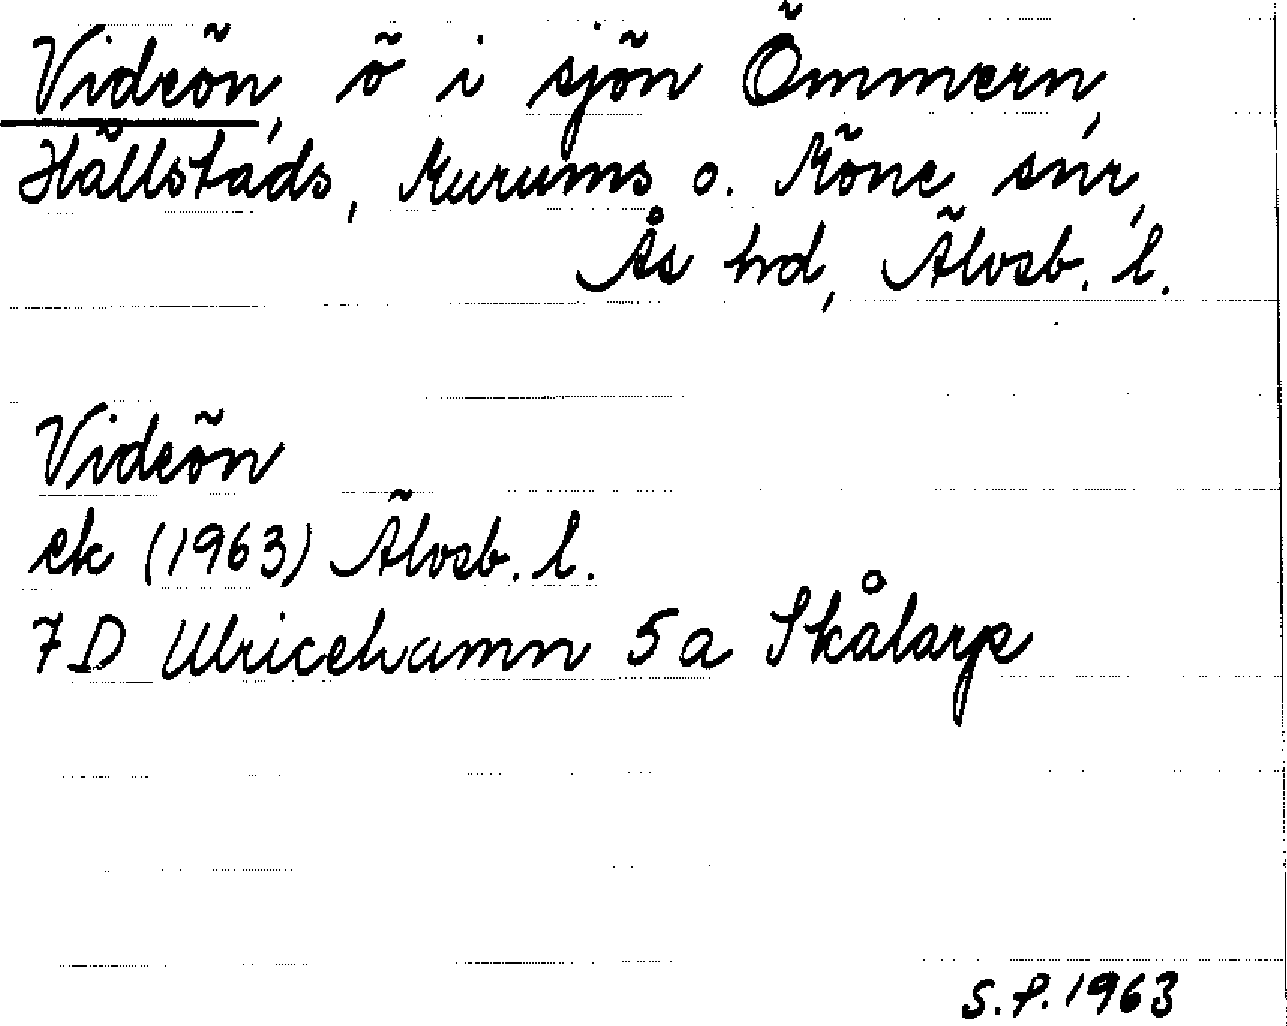 Videön, ö i sjön Ömmern,
Hällstads, Murums o. Möne snr,
Ås hd, Älvsb. l.
Videön
ek (1963) Älvsb. l.
7D Ulricehamn 5a Skålarp
S.P. 1963